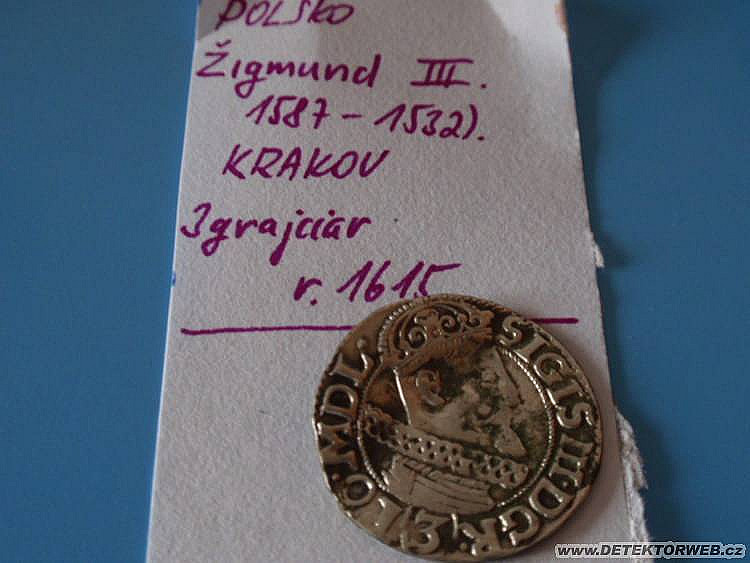 POLSKO
Žigmund III.
1587 - 1532).
KRAKOV
3grajciar
r. 1615
SIGIS III DG R
MDL.
www.DETEKTORWEB.cz